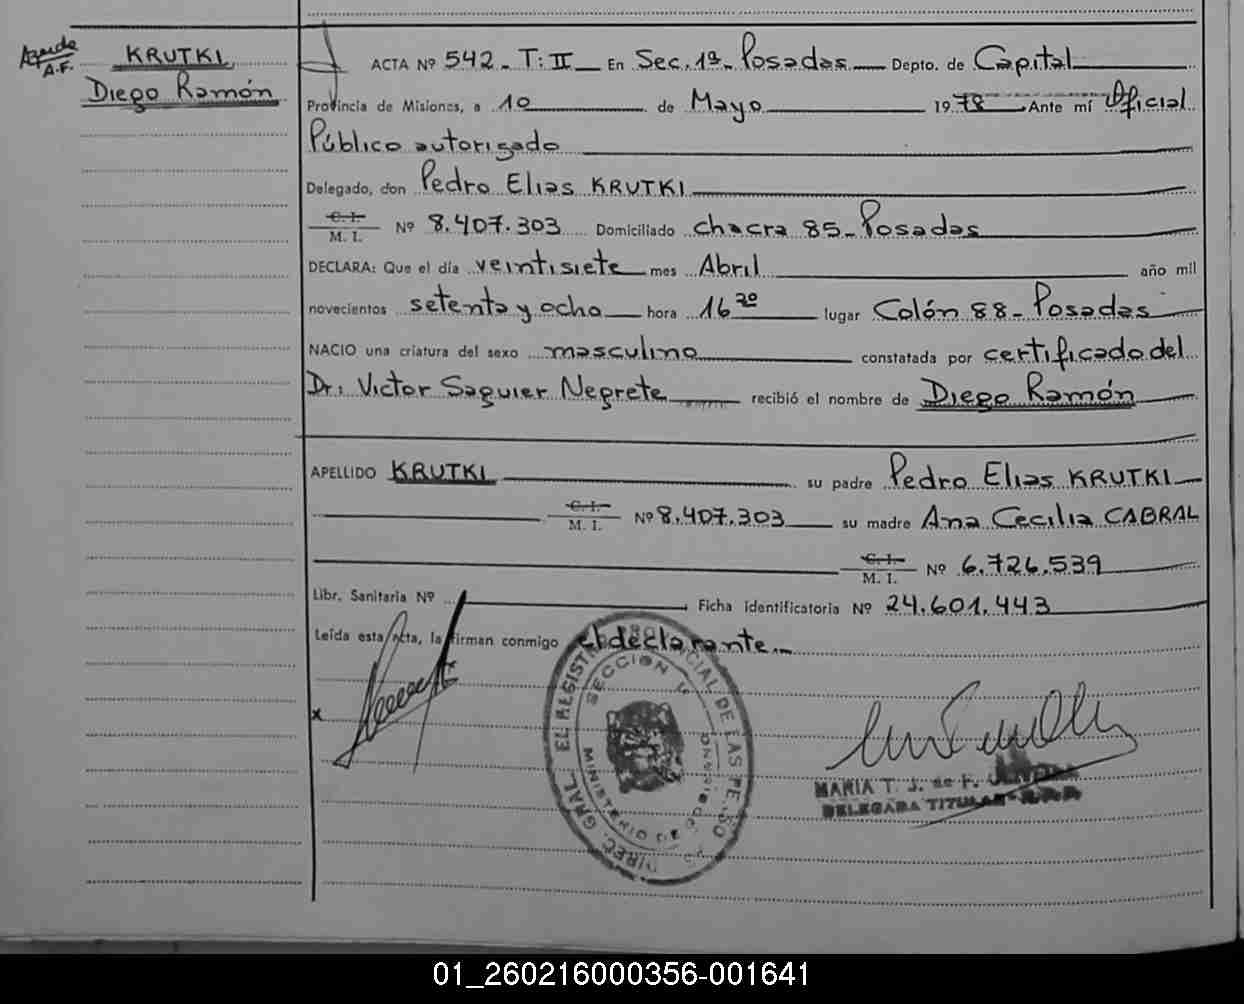 KRUTKI
A.F.
Diego Ramón
ACTA Nº 542 - T: II En Sec. 1ª - Posadas Depto. de Capital
Provincia de Misiones, a 10 de Mayo 1978 Ante mí Oficial
Público autorizado
Delegado, don Pedro Elias KRUTKI
C. I.
M. I. Nº 8.407.303 Domiciliado chacra 85 - Posadas
DECLARA: Que el día veintisiete mes Abril año mil
novecientos setenta y ocho hora 16 30 lugar Colón 88 - Posadas
NACIO una criatura del sexo masculino constatada por certificado del
Dr: Victor Saguier Negrete recibió el nombre de Diego Ramón
APELLIDO KRUTKI su padre Pedro Elias KRUTKI
C. I.
M. I. Nº 8.407.303 su madre Ana Cecilia CABRAL
C. I.
M. I. Nº 6.726.539
Libr. Sanitaria Nº Ficha identificatoria Nº 24.601.443
Leída esta acta, la firman conmigo el declarante.-
SECCION 1ª
MARIA T. J. de F.
DELEGADA TITULAR
01_260216000356-001641